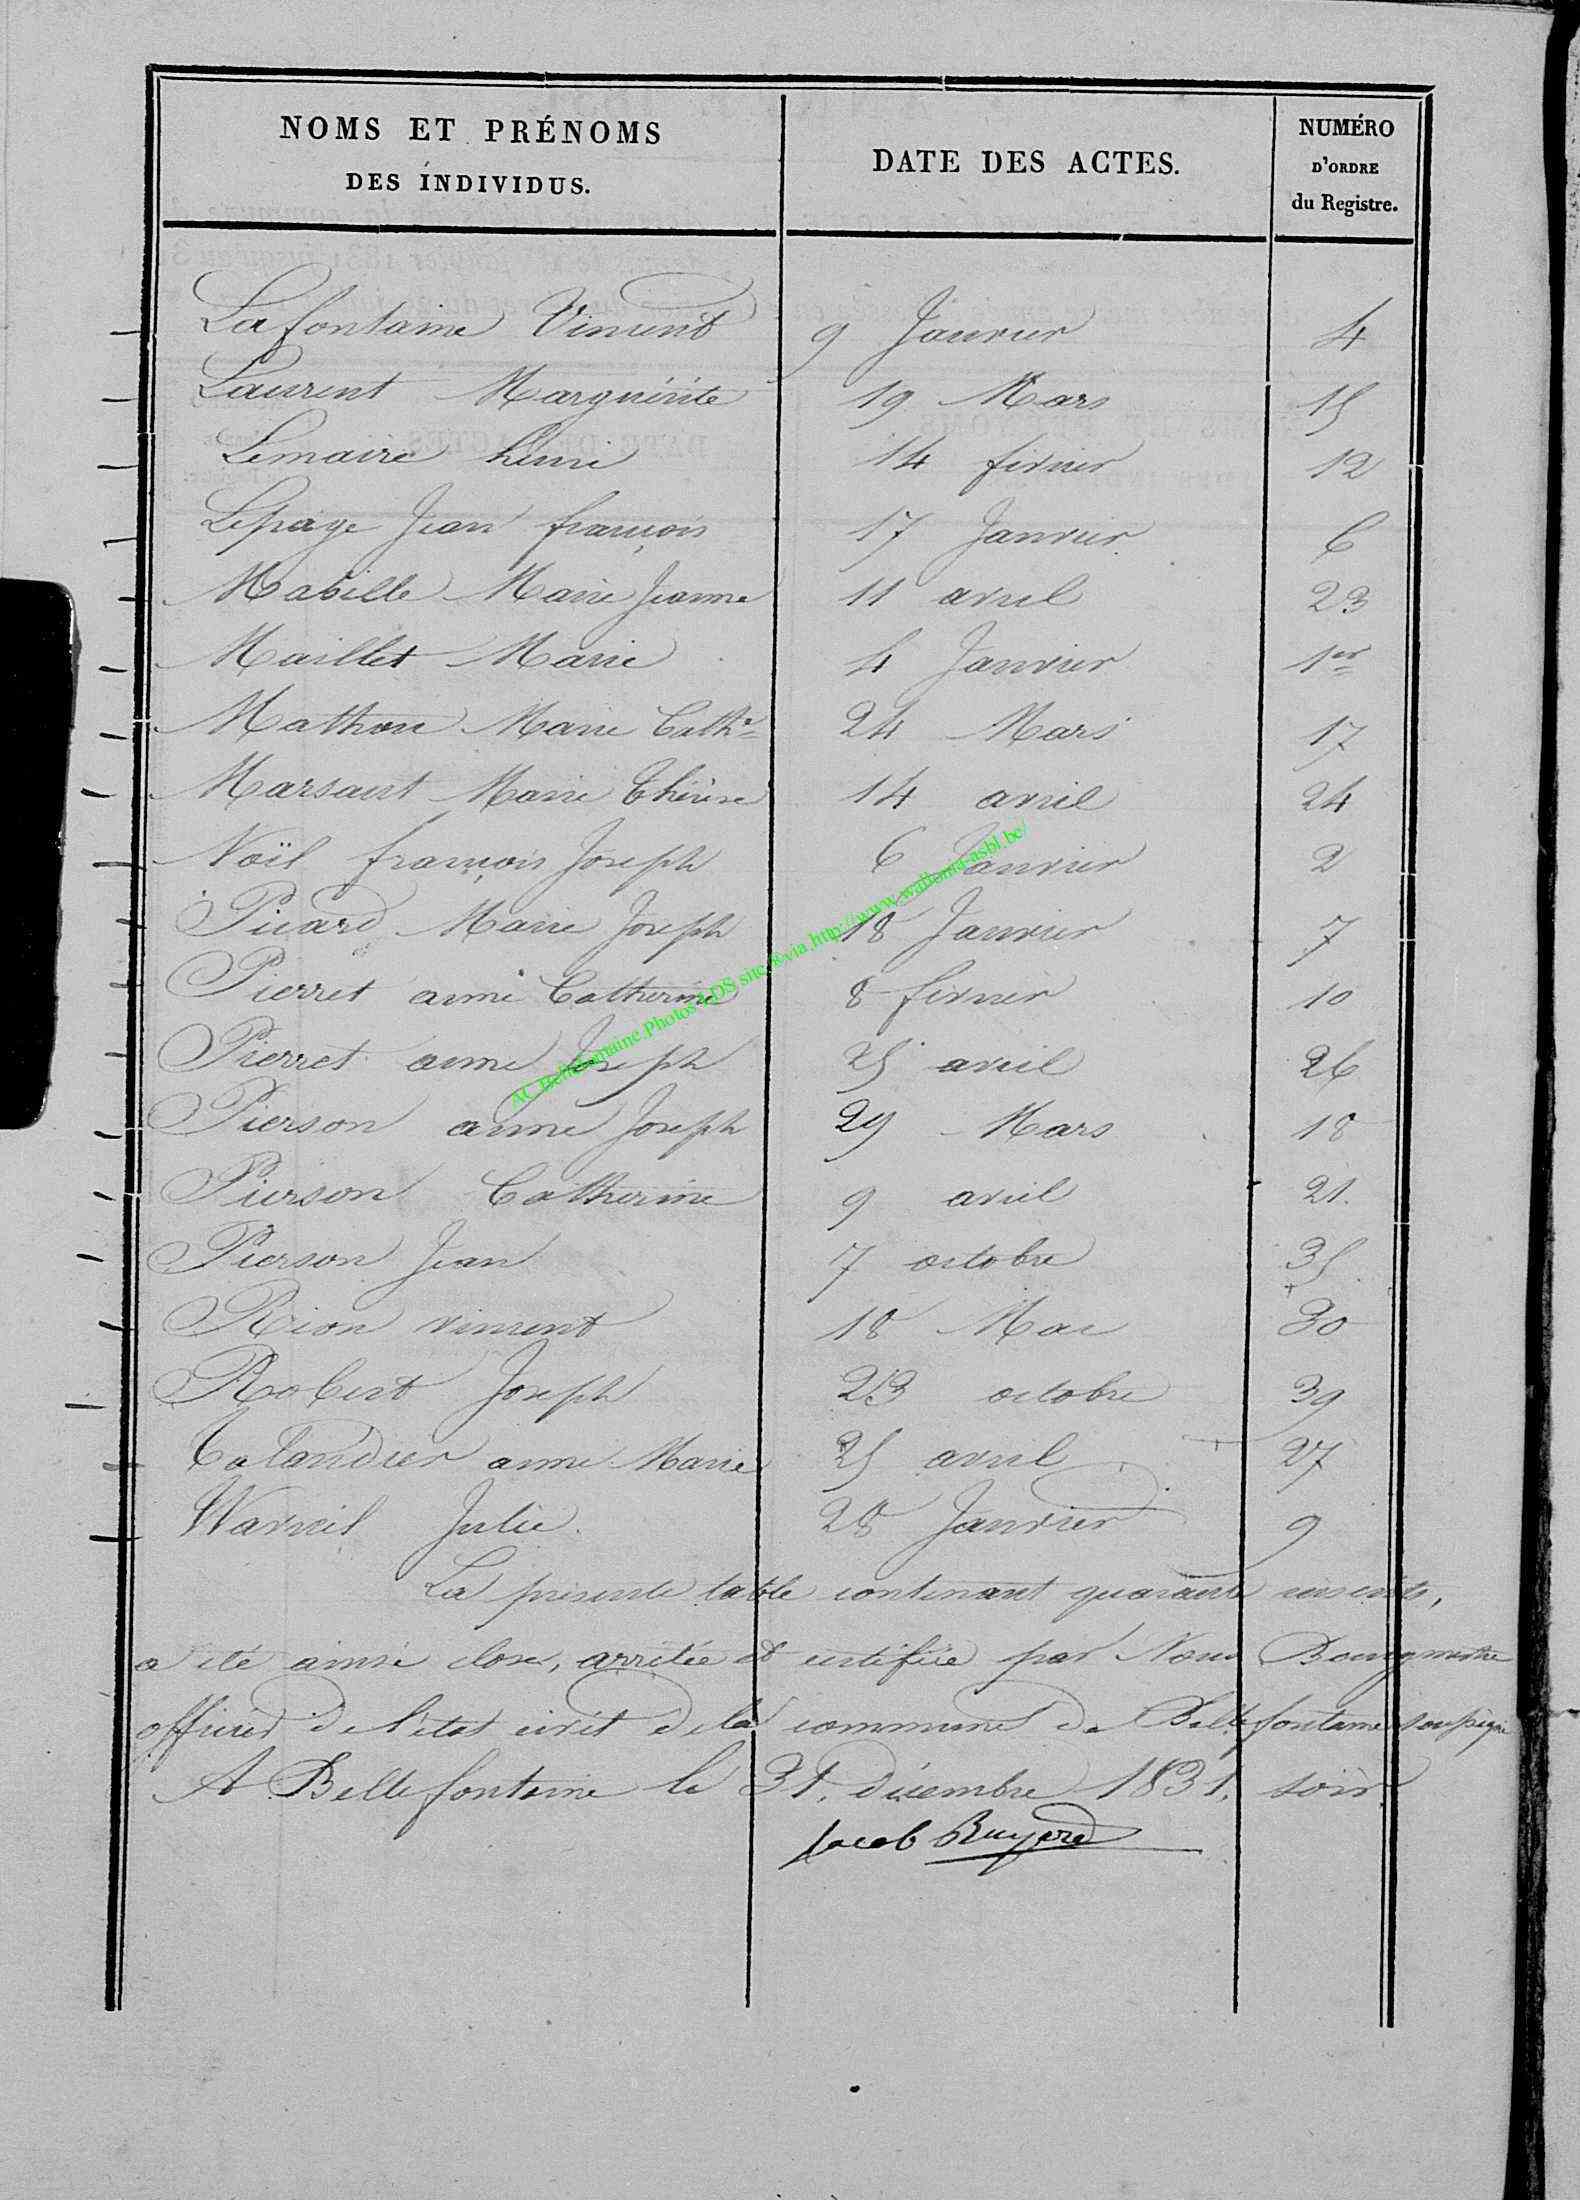 NOMS ET PRÉNOMS
DES INDIVIDUS.
DATE DES ACTES.
NUMÉRO
D'ORDRE
du Registre.
Lafontaine Vincent 9 Janvier 4
Laurent Marguerite 19 Mars 15
Lemaire henri 14 février 12
Lepage Jean françois 17 Janvier 6
Mabille Marie Jeanne 11 avril 23
Maillet Marie 4 Janvier 1er
Mathon Marie Cathe 24 Mars 17
Marsaut Marie Thérèse 14 avril 24
Noël françois Joseph 6 Janvier 2
Picard Marie Joseph 18 Janvier 7
Pierret anne Catherine 8 février 10
Pierret anne Joseph 25 avril 26
Pierson anne Joseph 29 Mars 18
Pierson Catherine 9 avril 21
Pierson Jean 7 octobre 35
Rion vincent 18 Mai 30
Robert Joseph 23 octobre 39
Talandier anne Marie 25 avril 27
Julie 28 Janvier 9
La présente table contenant quarante inscrits,
a été ainsi close, arrêtée et certifiée par Nous Bourgmestre
officier de l'état civil de la commune de Bellefontaine soussigné
A Bellefontaine le 31. décembre 1831. soir
Jacob
AC Bellefontaine. Photos LDS site & via http://www.wallonia-asbl.be/